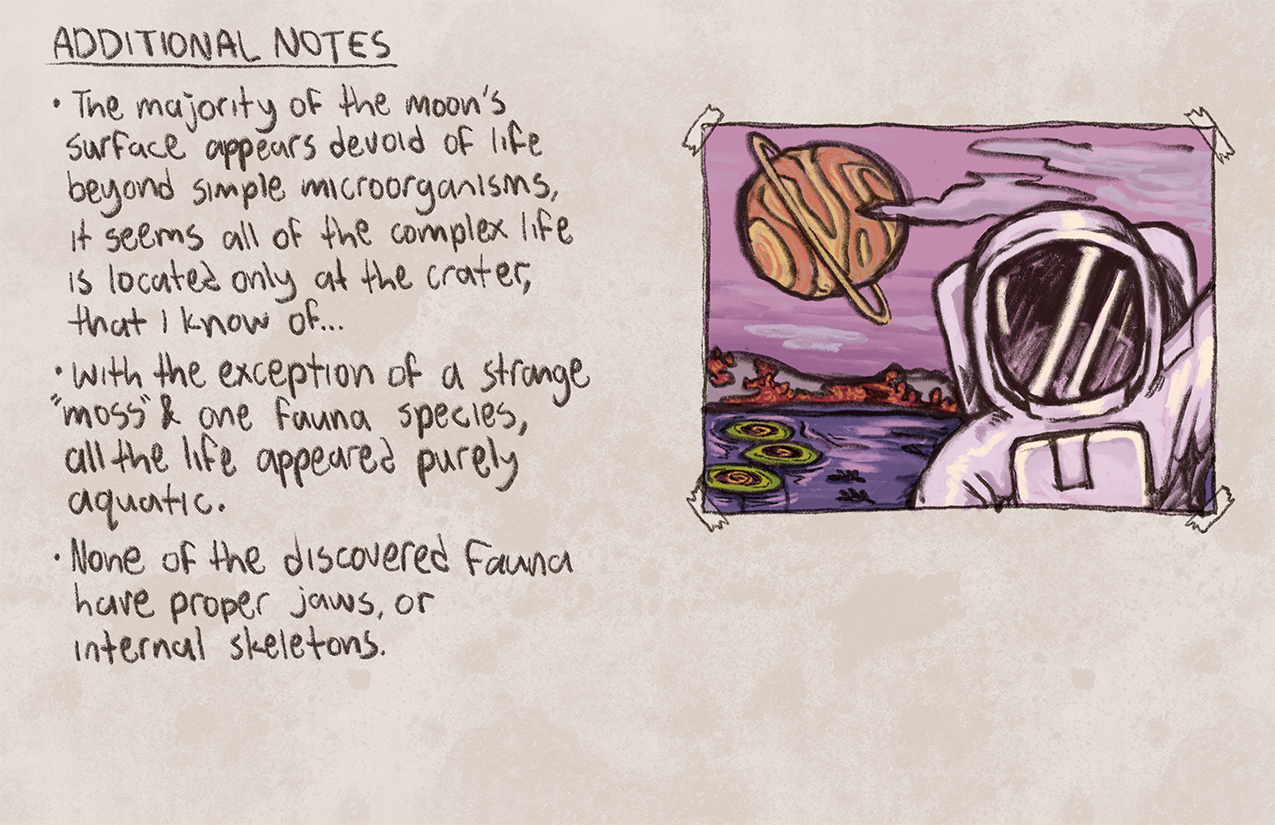 ADDITIONAL NOTES
• The majority of the moon's
surface appears devoid of life
beyond simple microorganisms,
it seems all of the complex life
is located only at the crater,
that i know of...
• With the exception of a strange
"moss" & one fauna species,
all the life appeared purely
aquatic.
• None of the discovered fauna
have proper jaws, or
internal skeletons.